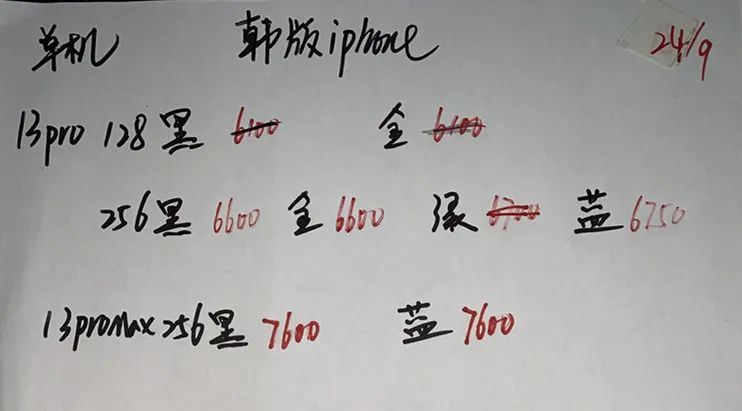 单机 韩版iphone 24/9
13pro 128黑 6100 金 6100
256黑 6600 金 6600 绿 6700 蓝 6750
13promax 256黑 7600 蓝 7600